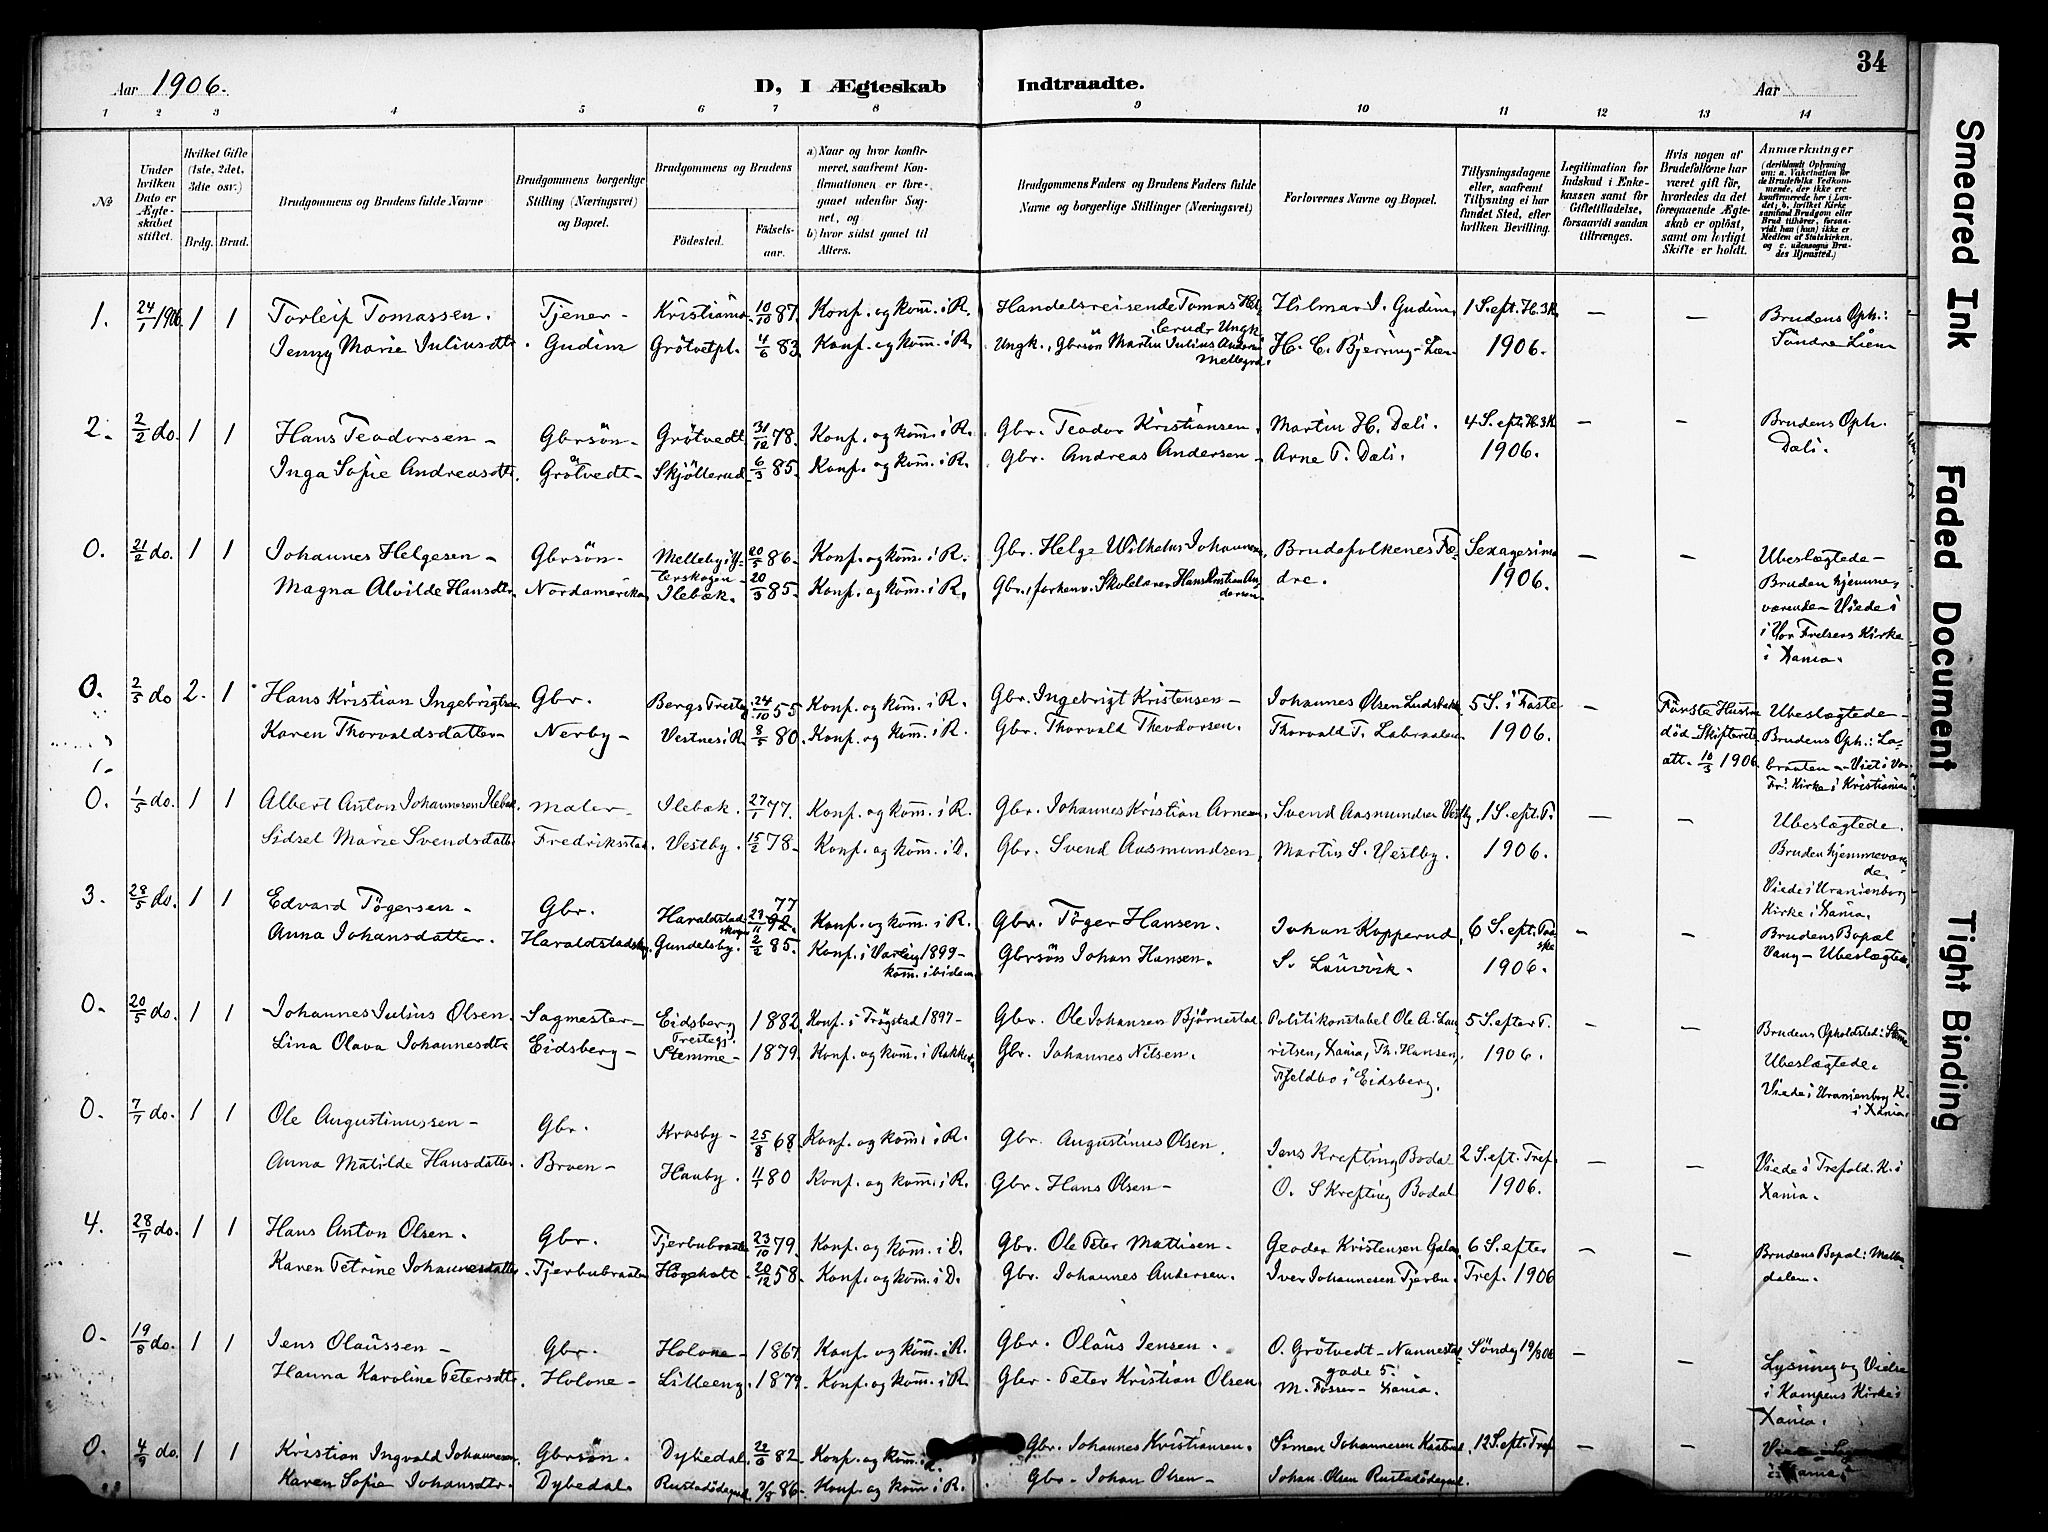 34
Aar 1906.
D, I Ægteskab Indtraadte.
Aar
1 2 3 4 5 6 7 8 9 10 11 12 13 14
№
Under hvilken Dato er Ægteskabet stiftet.
Hvilket Gifte (1ste, 2det, 3die osv.)
Brdg. Brud.
Brudgommens og Brudens fulde Navne
Brudgommens borgerlige Stilling (Næringsvei) og Bopæl.
Brudgommens og Brudens
Fødested. Fødselsaar.
a) Naar og hvor konfirmeret, saafremt Konfirmationen er foregaaet udenfor Sognet, og
b) hvor sidst gaaet til Alters.
Brudgommens Faders og Brudens Faders fulde Navne og borgerlige Stillinger (Næringsvei)
Forlovernes Navne og Bopæl.
Tillysningsdagene eller, saafremt Tillysning ei har fundet Sted, efter hvilken Bevilling.
Legitimation for Indskud i Enkekassen samt for Giftetilladelse, forsaavidt saadan tiltrænges.
Hvis nogen af Brudefolkene har været gift før, hvorledes da det foregaaende Ægteskab er opløst, samt om lovligt Skifte er holdt.
Anmærkninger
(deriblandt Oplysning om: a. Vakcination for de Brudefolks Vedkommende, der ikke ere konfirmerede her i Landet; b. hvilket Kirkesamfund Brudgom eller Brud tilhører, forsaavidt han (hun) ikke er Medlem af Statskirken, og c. udensogns Brudes Hjemsted.)
1. 24/1 1906 1 1 Torleif Tomassen. Tjener - Kristiania. 10/10 87. Konf. og kom. i R. Handelsreisende Tomas Hilmar J. Gudim 1 S. eft. H. 3 K. - - Brudens Oph.:
Jenny Marie Juliusdtr. Gudim Grötvetpl. 4/6 83. Konf. og kom. i R. Ungk., Gbrsön Martin Julius Anders. H. C. Bjerring 1906. Söndre Lien
2. 2/2 do. 1 1 Hans Teodorsen - Gbrsön - Grötvedt 31/12 78. Konf. og kom. i R. Gbr. Teodor Kristiansen. Martin H. Dæli. 4 S. eft. H. 3 K. - - Brudens Oph.
Inga Sofie Andreasdtr. Grötvedt - Skjöllerud 6/3 85. Konf. og kom. i R. Gbr. Andreas Andersen - Arne T. Dæli. 1906. Dæli.
0. 21/2 do. 1 1 Johannes Helgesen - Gbrsön - Melleby i Ytterskogen - 20/5 86. Konf. og kom. i R. Gbr. Helge Wilhelm Johannesen. Brudefolkenes Fædre. Sexagesima 1906. - - Ubeslægtede -
Magna Alvilde Hansdtr. Nordamerika Ilebæk. 20/3 85. Konf. og kom. i R. Gbr., forhenv. Skolelærer Hans Kristian Andersen Bruden hjemmeværende - Viede i Vor Frelsers Kirke i Xania.
0. 2/5 do 2. 1 Hans Kristian Ingebrigtsen Gbr. Bergs Trestey 24/10 55 Konf. og kom. i R. Gbr. Ingebrigt Kristensen - Johannes Olsen 5 S. i Faste - Förste Hustru Ubeslægtede -
Karen Thorvaldsdatter - Nerby - Vestnes i R 8/5 80. Konf. og kom. i R. Gbr. Thorvald Theodorsen. Thorvald T. Labraaten 1906. död - Skifteretsatt. 10/3 1906. Brudens Oph.: Labraaten - Viet i Vor Fr. Kirke i Kristiania
0. 1/5 do. 1 1 Albert Anton Johannesen Ilebæk. Maler - Ilebæk. 27/1 77. Konf. og kom. i R. Gbr. Johannes Kristian Arnesen. Svend Aasmundsen Vestby. 1 S. eft. P. - - Ubeslægtede.
Sidsel Marie Svendsdatter Fredriksstad. Vestby. 15/2 78 - Konf. og kom. i D. Gbr. Svend Aasmundsen Martin S. Vestby. 1906. Bruden hjemmeværende.
Viede i Uranienborg Kirke i Xania.
3. 28/5 do. 1 1 Edvard Tögersen - Gbr. Haraldstadskogen 23/11 77 Konf. og kom. i R. Gbr. Töger Hansen. Johan Kopperud. 6 S. eft. Paaske - - Brudens Bopæl
Anna Johansdatter. Haraldstadskog. Gundelsby. 2/2 85. Konf. i Varteig 1899 - kom. ibidem Gbrsön Johan Hansen. S. Lauvvik. 1906. Vang - Ubeslægtede.
0. 20/5 do. 1 1 Johannes Julius Olsen. Sagmester - Eidsberg Prestegj. 1882. Konf. i Trögstad 1897 - Gbr. Ole Johansen Björnestad. Politikonstabel Ole A. Lauritsen, Xania, Th. Hansen, Fjeldbo i Eidsberg. 5 S. efter P. 1906. - - Brudens Opholdsted: Stemme
Lina Olava Johannesdtr. Eidsberg - Stemme - 1879. Konf. og kom. i Rakkestad. Gbr. Johannes Nilsen. Ubeslægtede.
Viede i Uranienborg K. i Xania.
0. 7/7 do. 1 1 Ole Augustinussen - Gbr. Krosby - 25/8 68. Konf. og kom. i R. Gbr. Augustinus Olsen. Jens Krefting Bodal 2 S. eft. Tref. 1906. - - Viede i Trefold. K. i Xania.
Anna Matilde Hansdatter. Broen - Hauby. 11/1 80 Konf. og kom. i R. Gbr. Hans Olsen - O. S Krefting Bodal
4. 28/7 do. 1 1 Hans Anton Olsen. Gbr. Tjerbubraaten 23/10 79. Konf. og kom. i D. Gbr. Ole Peter Mattisen. Geodor Kristensen 6 S. efter Tref. 1906 - - Brudens Bopæl:
Karen Petrine Johannesdatter. Tjerbubraaten Högeholt - 20/12 58. Konf. og kom. i D. Gbr. Johannes Andersen. Iver Johannesen Tjerbu.
0. 19/8 do. 1 1 Jens Olaussen - Gbr. Holone - 1867. Konf. og kom. i R. Gbr. Olaus Jensen. O. Grötvedt - Nannestadgade 5. Söndag 19/8 06 - - Lysning og Vielse i Kampens Kirke i Xania.
Hanna Karoline Petersdtr. Holone - Lilleeng. 1879. Konf. og kom. i R. Gbr. Peter Kristian Olsen M. Fosser - Xania.
0. 4/9 do. 1 1 Kristian Ingvald Johannesen. Gbrsön. Dybedal 82. Konf. og kom. i R. Gbr. Johannes Kristiansen. Simen Johannesen 12 S. eft. Tref - - i Xania.
Karen Sofie Johansdtr. Dybedal. Rustadödegrd. 86 - Konf. og kom. i R. Gbr. Johan Olsen - Johan Olsen Rustadödegrd.
Smeared Ink
Faded Document
Tight Binding